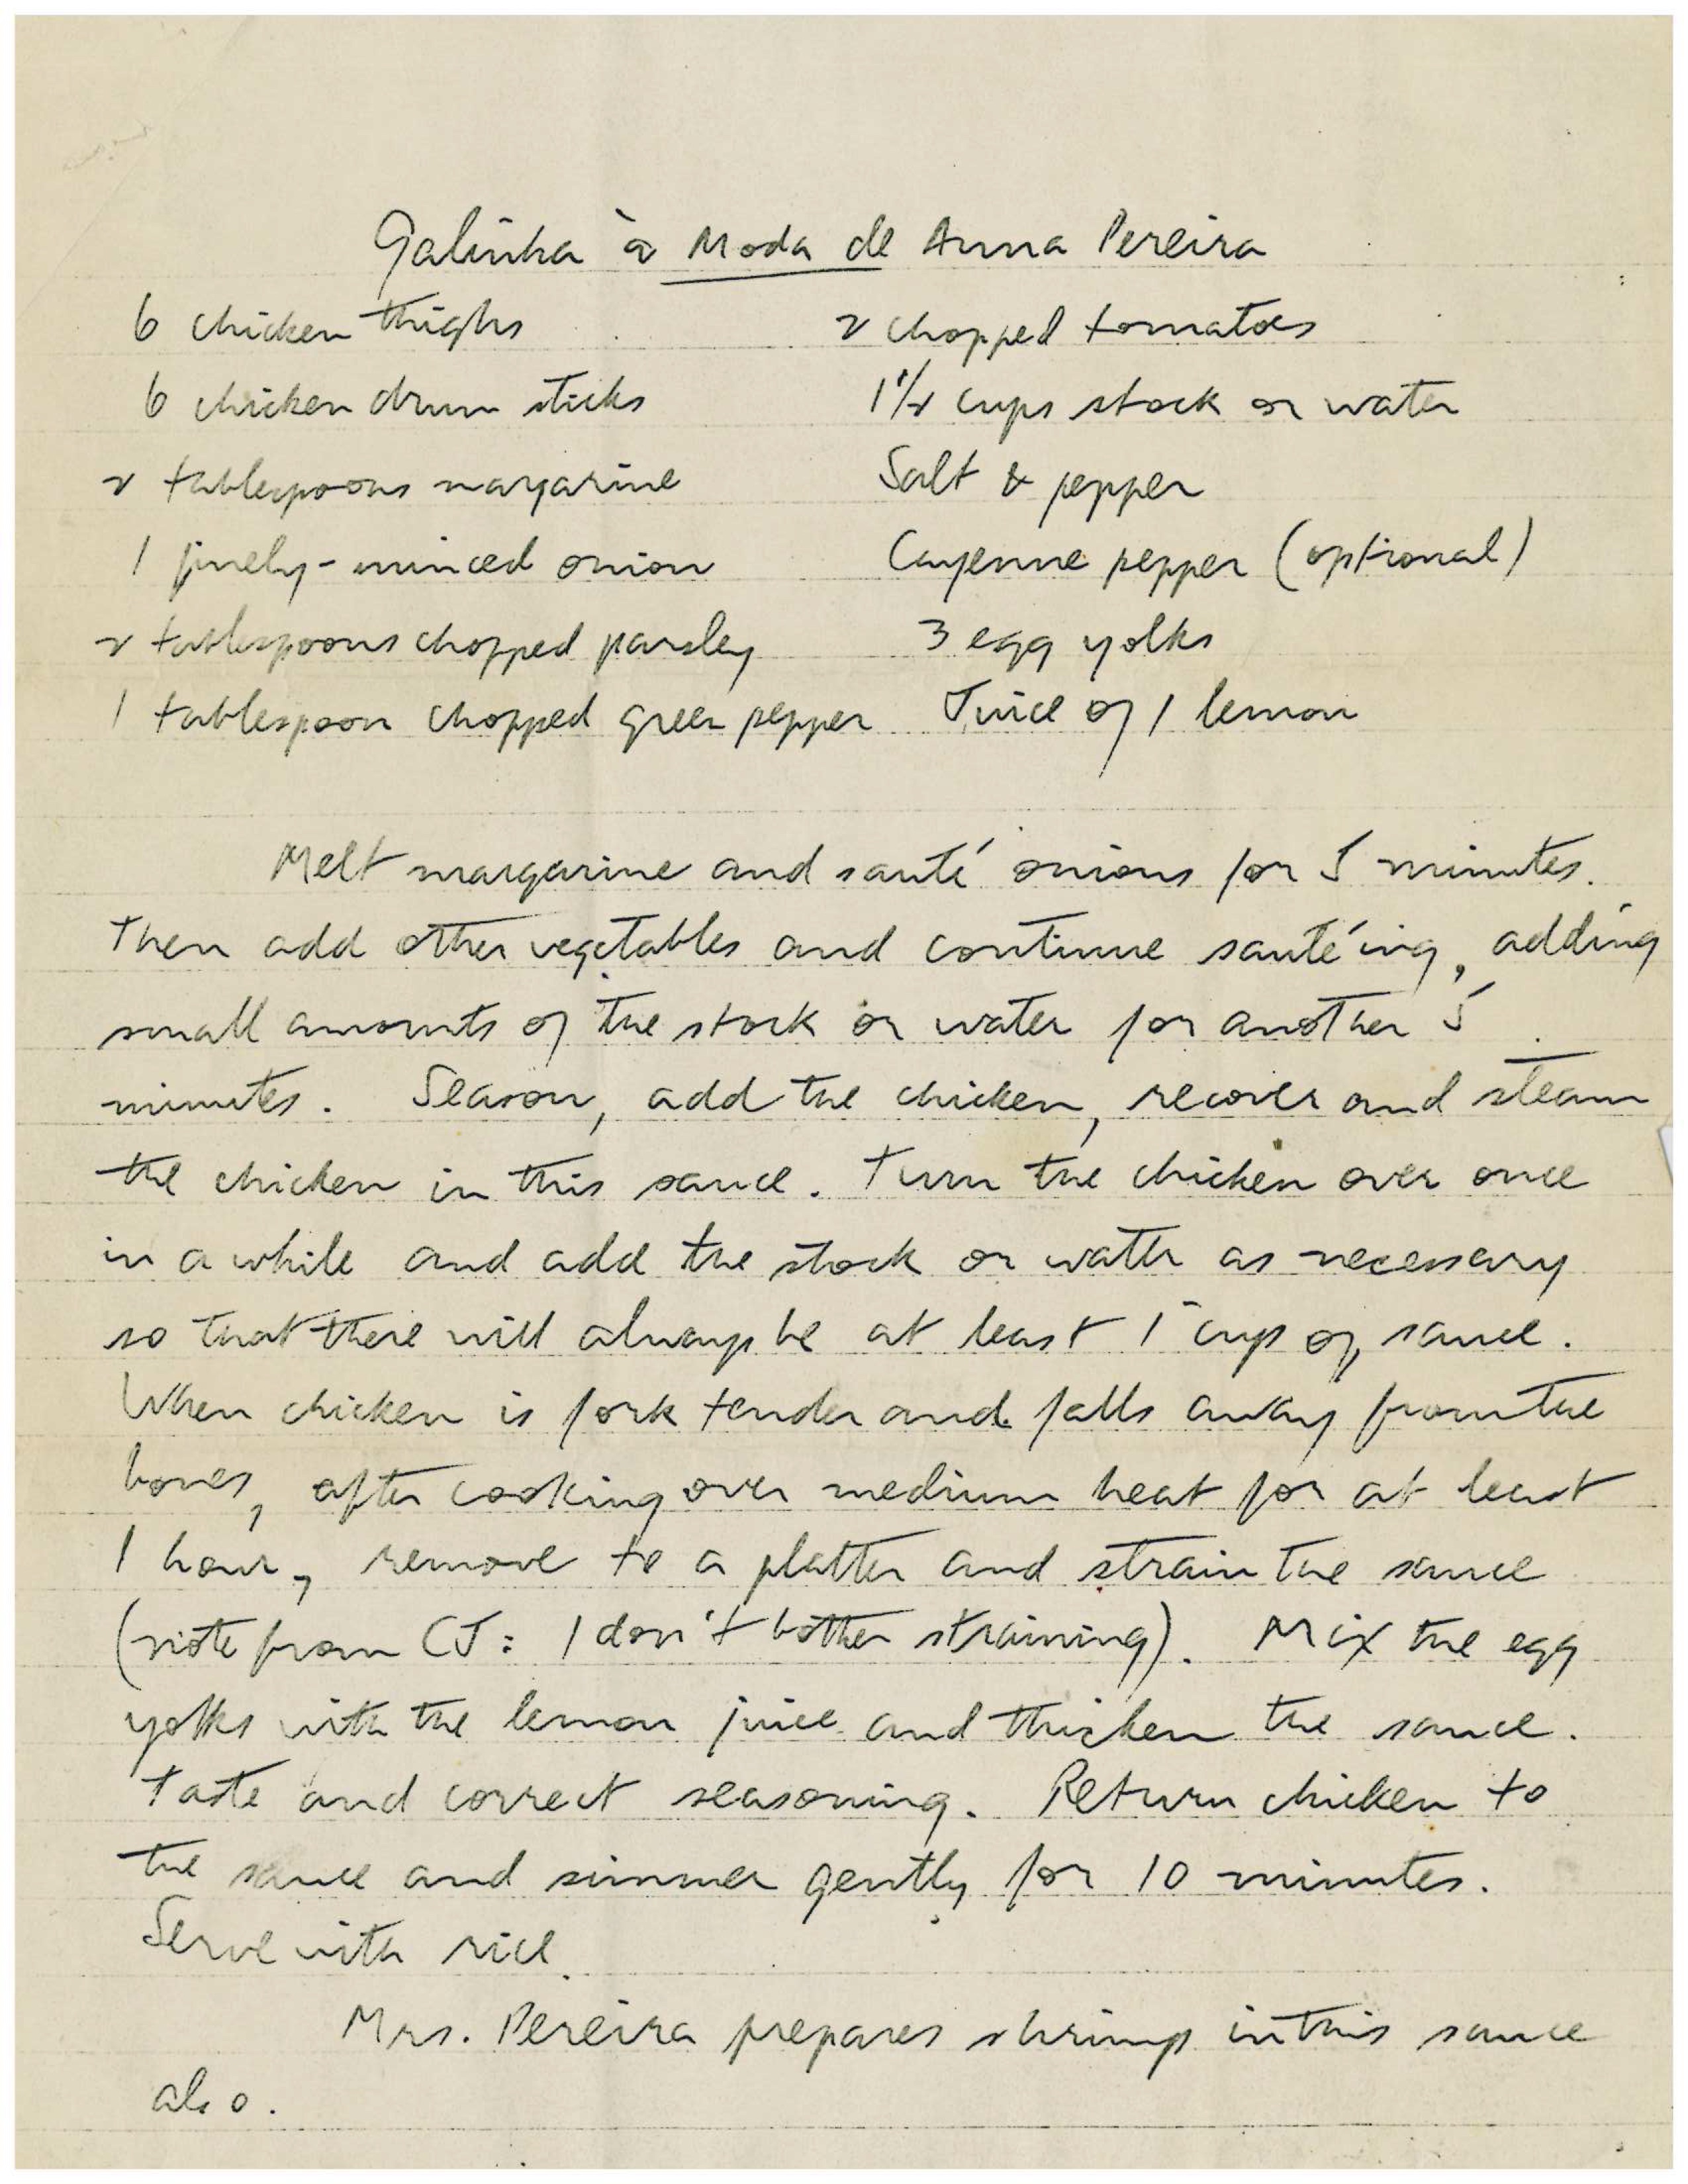 Galinha à Moda de Anna Pereira
6 chicken thighs
6 chicken drum sticks
2 tablespoons margarine
1 finely-minced onion
2 tablespoons chopped parsley
1 tablespoon chopped green pepper
2 chopped tomatoes
1 1/2 cups stock or water
Salt & pepper
Cayenne pepper (optional)
3 egg yolks
Juice of 1 lemon
Melt margarine and sauté onions for 5 minutes.
Then add other vegetables and continue sautéing, adding
small amounts of the stock or water for another 5
minutes. Season, add the chicken, recover and steam
the chicken in this sauce. Turn the chicken over once
in a while and add the stock or water as necessary
so that there will always be at least 1 cup of sauce.
When chicken is fork tender and falls away from the
bones, after cooking over medium heat for at least
1 hour, remove to a platter and strain the sauce
(note from CJ: I don't bother straining). Mix the egg
yolks with the lemon juice and thicken the sauce.
Taste and correct seasoning. Return chicken to
the sauce and simmer gently for 10 minutes.
Serve with rice.
Mrs. Pereira prepares shrimp in this sauce
also.